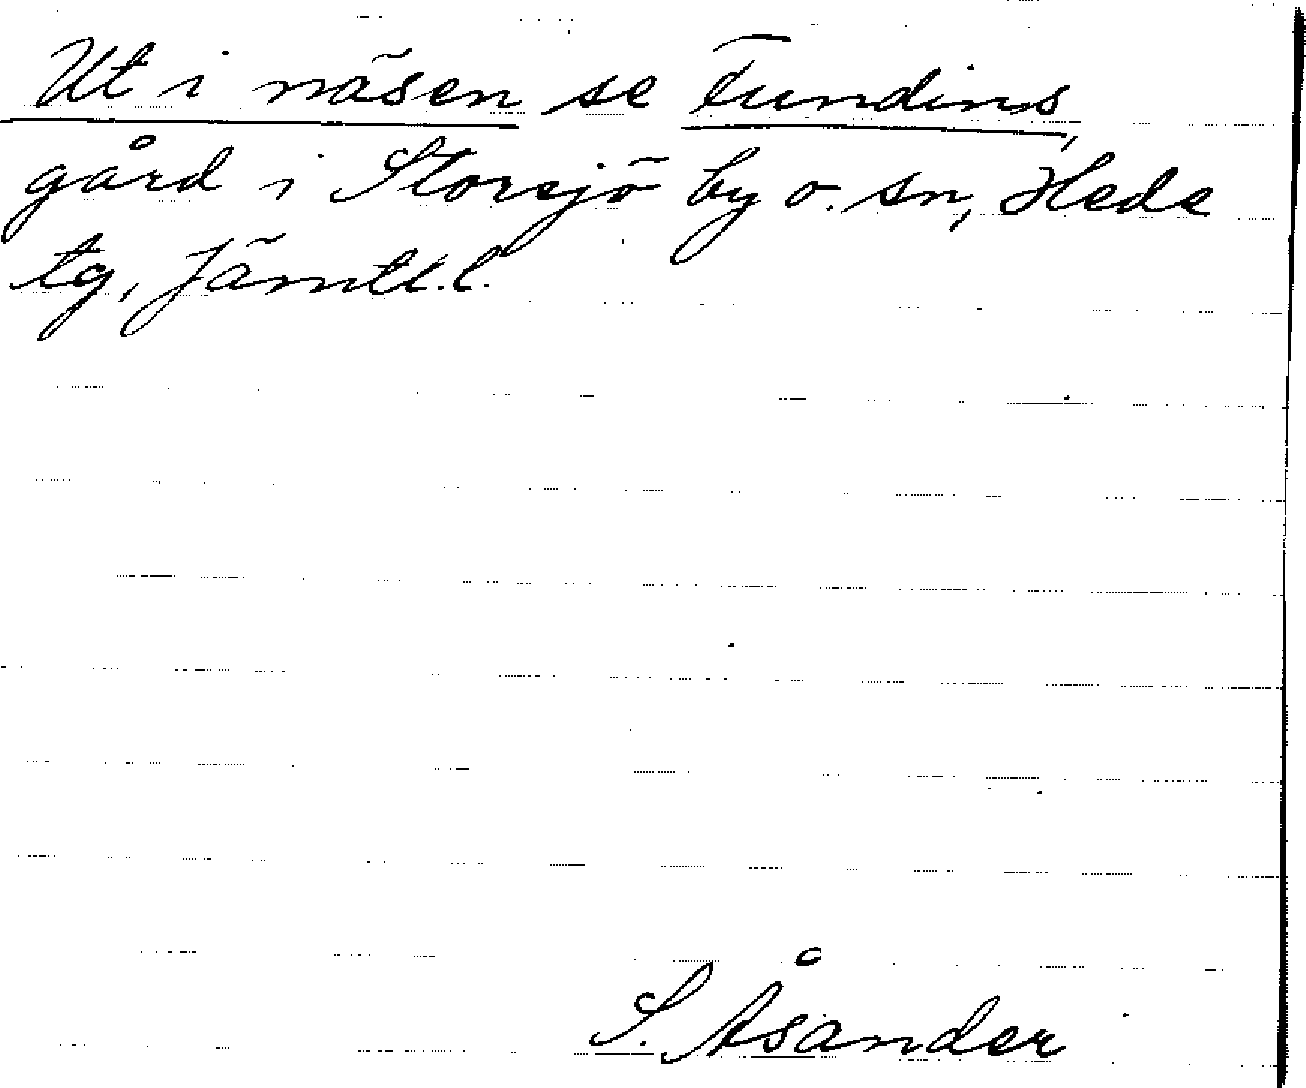 Ut i näsen se Fundins,
gård i Storsjö by o. sn, Hede
tg, Jämtl.l.
S. Åsander